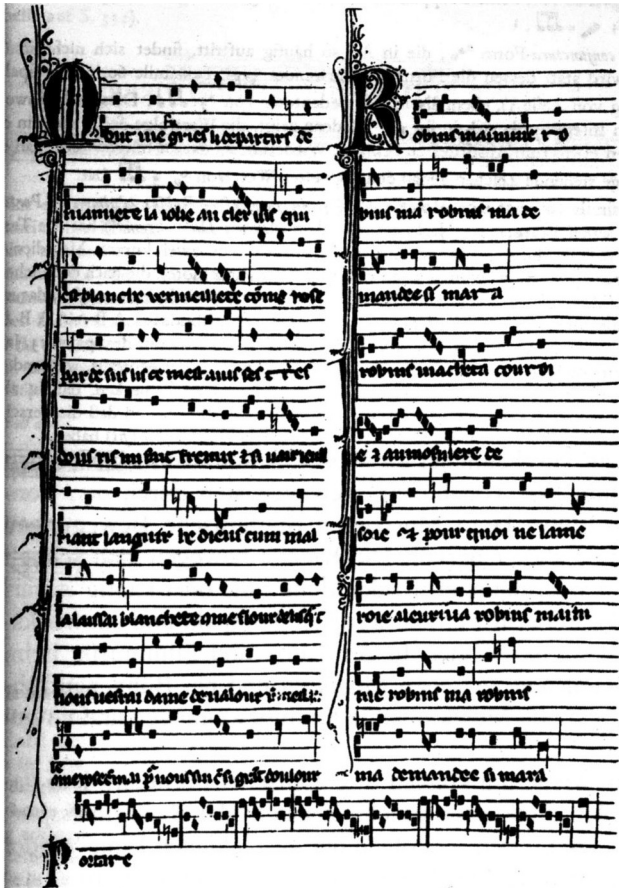 Mout me fu gries li departirs de
mamiete la iolie au cler uis qui
est blanche vermeillete cõme rose
par desus lis ce mest auis ses tres
dous ris mi fait fremir & si uair oeull
riant languir he dieus com mal
la laissai blanchete
uous uerrai dame de ualour
come rose en mai pͬ uous sui en si grãt doulour
Robins maimme ro
bins ma robins ma de
mandee si mar a
robins machata courroi
e & aumosniere de
soie & pour quoi ne lame
roie aleuriua robins maim
me robins ma robins
ma demandee si mara
Portare